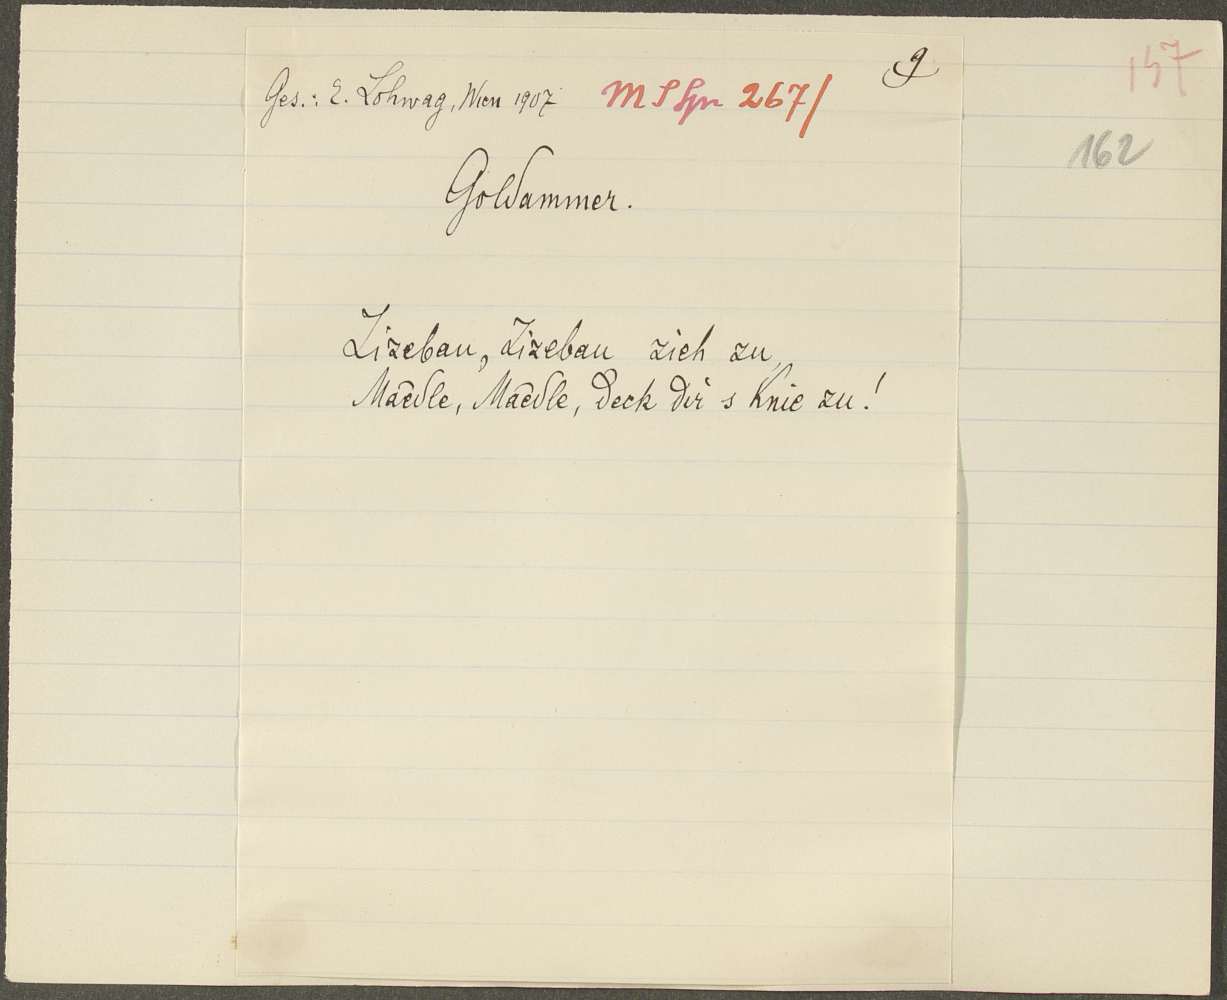 9
157
Ges.: E. Lohwag, Wien 1907 MSSpr 267/
162
Goldammer.
Zizebau, Zizebau zieh zu,
Maedle, Maedle, deck dir s Knie zu!